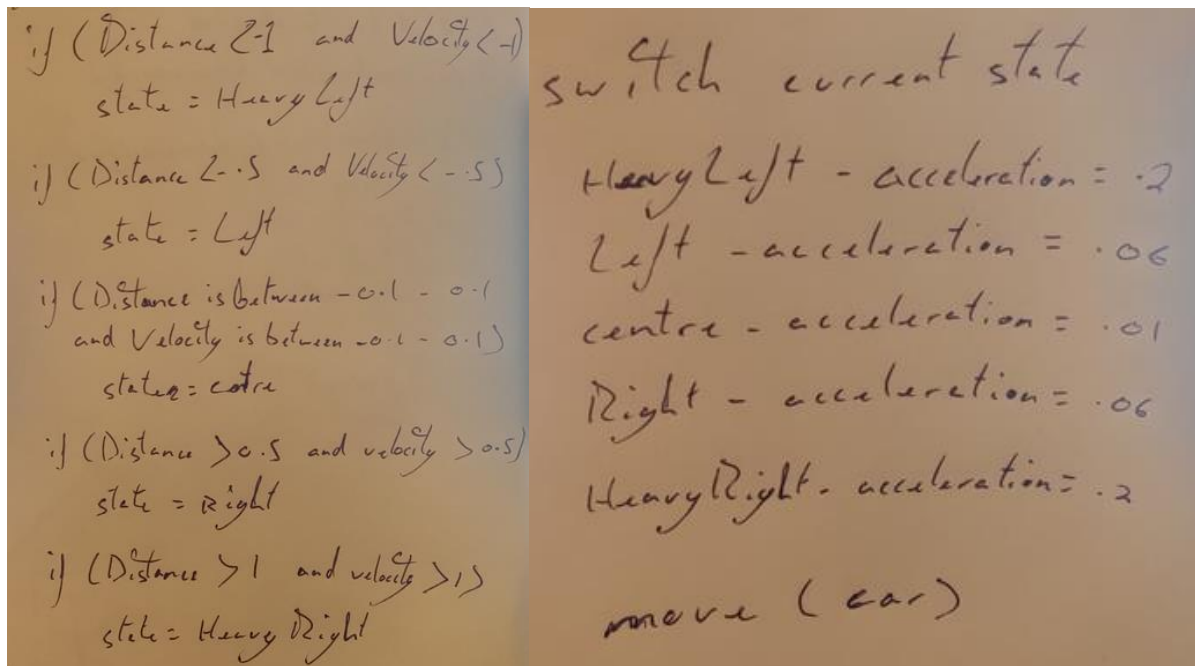 if (Distance <-1 and Velocity < -1)
state = Heavy Left
if (Distance <-.5 and Velocity < -.5)
state = Left
if (Distance is between -0.1 - 0.1
and Velocity is between -0.1 - 0.1)
state = centre
if (Distance > 0.5 and velocity > 0.5)
state = Right
if (Distance > 1 and velocity > 1)
state = Heavy Right
switch current state
Heavy Left - acceleration = .2
Left - acceleration = .06
centre - acceleration = .01
Right - acceleration = .06
Heavy Right - acceleration = .2
move (car)